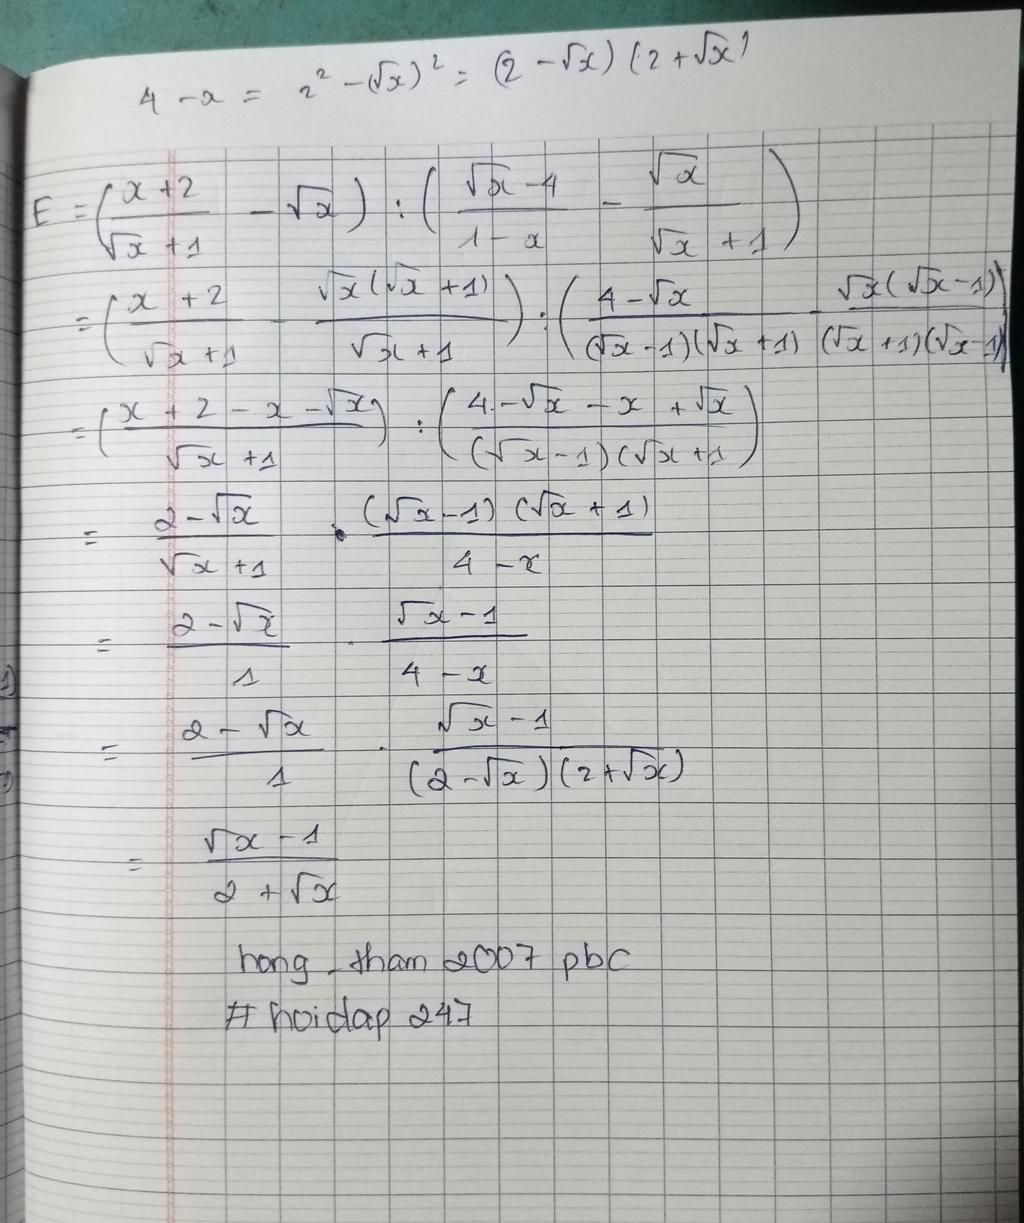 4 - x = 2² - (√x)² = (2 - √x)(2 + √x)
E = ((x + 2)/(√x + 1) - √x) : ((√x - 4)/(1 - x) - √x/(√x + 1))
= ((x + 2)/(√x + 1) - √x(√x + 1)/(√x + 1)) : ((4 - √x)/((√x - 1)(√x + 1)) - √x(√x - 1)/((√x + 1)(√x - 1)))
= ((x + 2 - x - √x)/(√x + 1)) : ((4 - √x - x + √x)/((√x - 1)(√x + 1)))
= (2 - √x)/(√x + 1) . ((√x - 1)(√x + 1))/(4 - x)
= (2 - √x)/1 . (√x - 1)/(4 - x)
= (2 - √x)/1 . (√x - 1)/((2 - √x)(2 + √x))
= (√x - 1)/(2 + √x)
hong_tham 2007 pbc
# hoidap 247